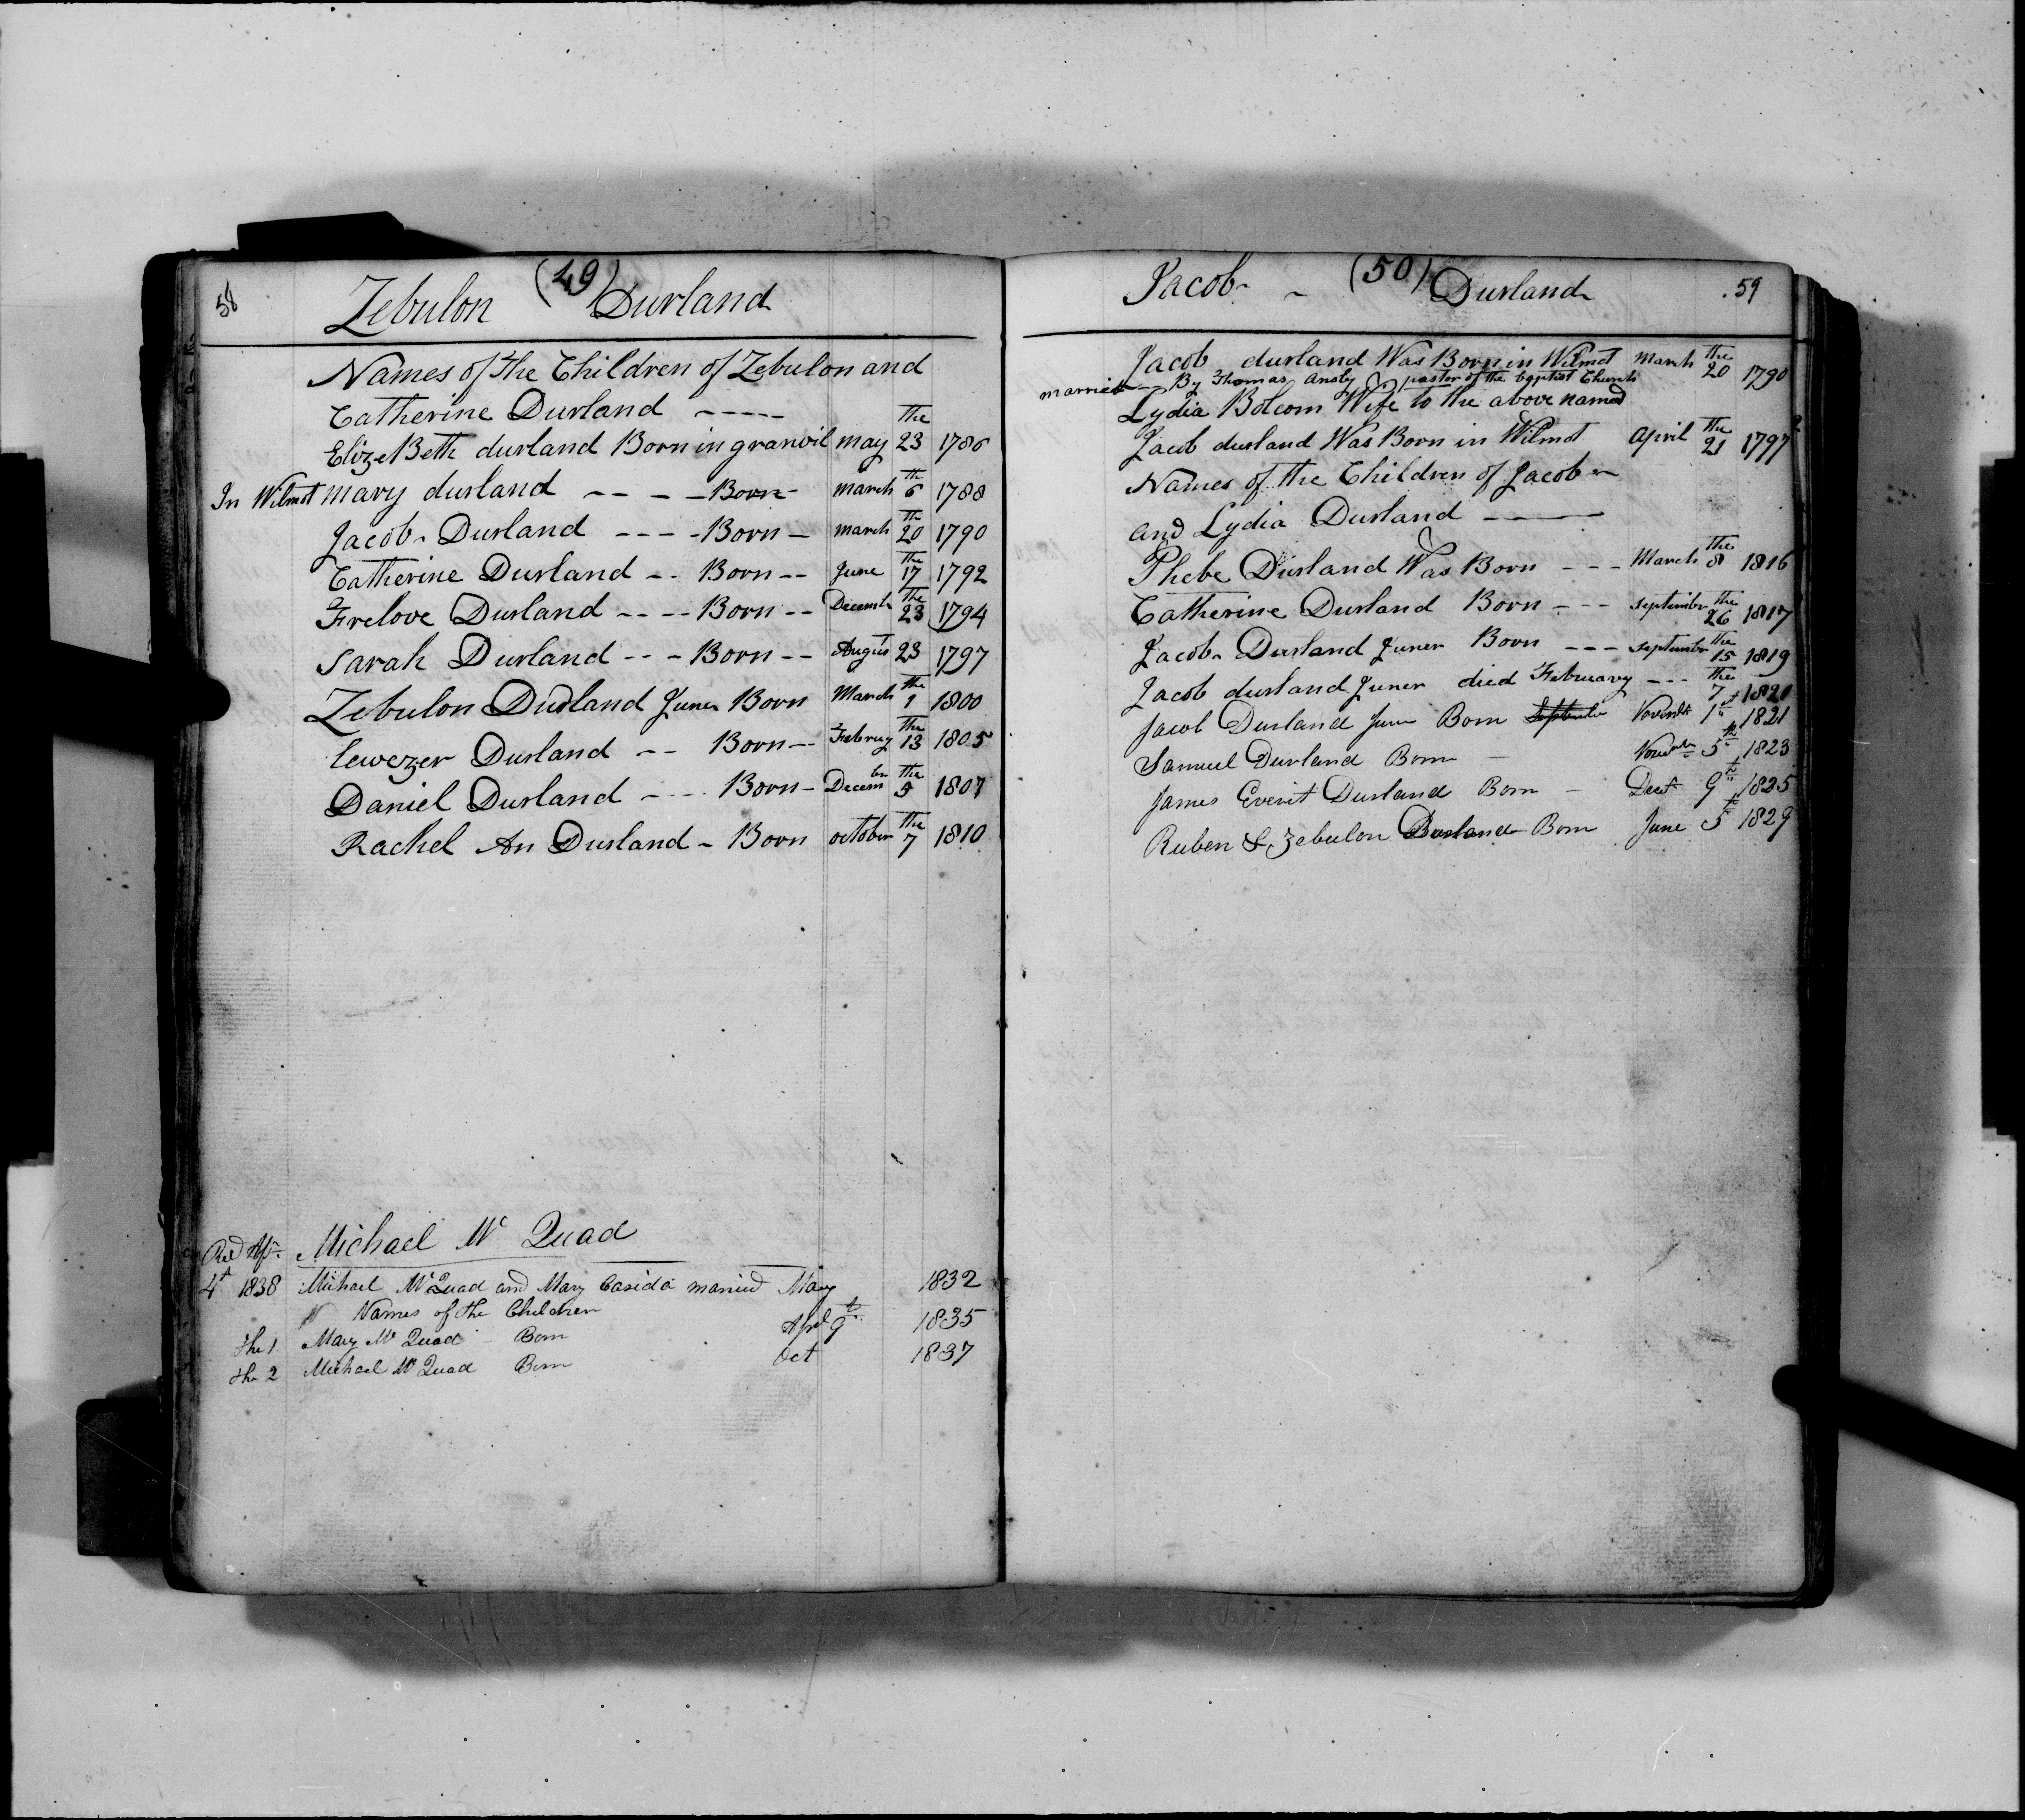 58 Zebulon (49) Durland
Names of the Children of Zebulon and
Catherine Durland -----
ElizeBeth durland Born in granvil may the 23 1786
In Wilmot mary durland -- -- Born - march th 6 1788
Jacob Durland ---- Born - march th 20 1790
Catherine Durland -- Born -- June the 17 1792
Frelove Durland ---- Born -- Decemb the 23 1794
Sarah Durland --- Born -- August 23 1797
Zebulon Durland Juner Born March the 1 1800
Durland -- Born -- Februy the 13 1805
Daniel Durland ---- Born - Decem ber the 5 1807
Rachel An Durland - Born october the 7 1810
Michael Mc Quad
4t 1838 Michael McQuad and Mary Casida married May 1832
Names of the Children
the 1 Mary Mc Quad - Born Apl 9t 1835
the 2 Michael Mc Quad Born Oct 1837
Jacob - (50) Durland 59
Jacob durland Was Born in Wilmot March the 20 1790
married - By Thomas Ansly pastor of the Baptist Church
Lydia Bolcom Wife to the above named
Jacob durland Was Born in Wilmot April the 21 1797
Names of the Children of Jacob
and Lydia Durland -----
Phebe Durland Was Born --- March the 8 1816
Catherine Durland Born --- septembr the 26 1817
Jacob Durland Juner Born --- septembr the 15 1819
Jacob durland Juner died February --- the 7 1820
Jacob Durland Junr Born September Novembr 1t 1821
Samuel Durland Born - Novembr 5th 1823
James Everit Durland Born - Dect 9th 1825
Ruben & Zebulon Durland Born June 5t 1829